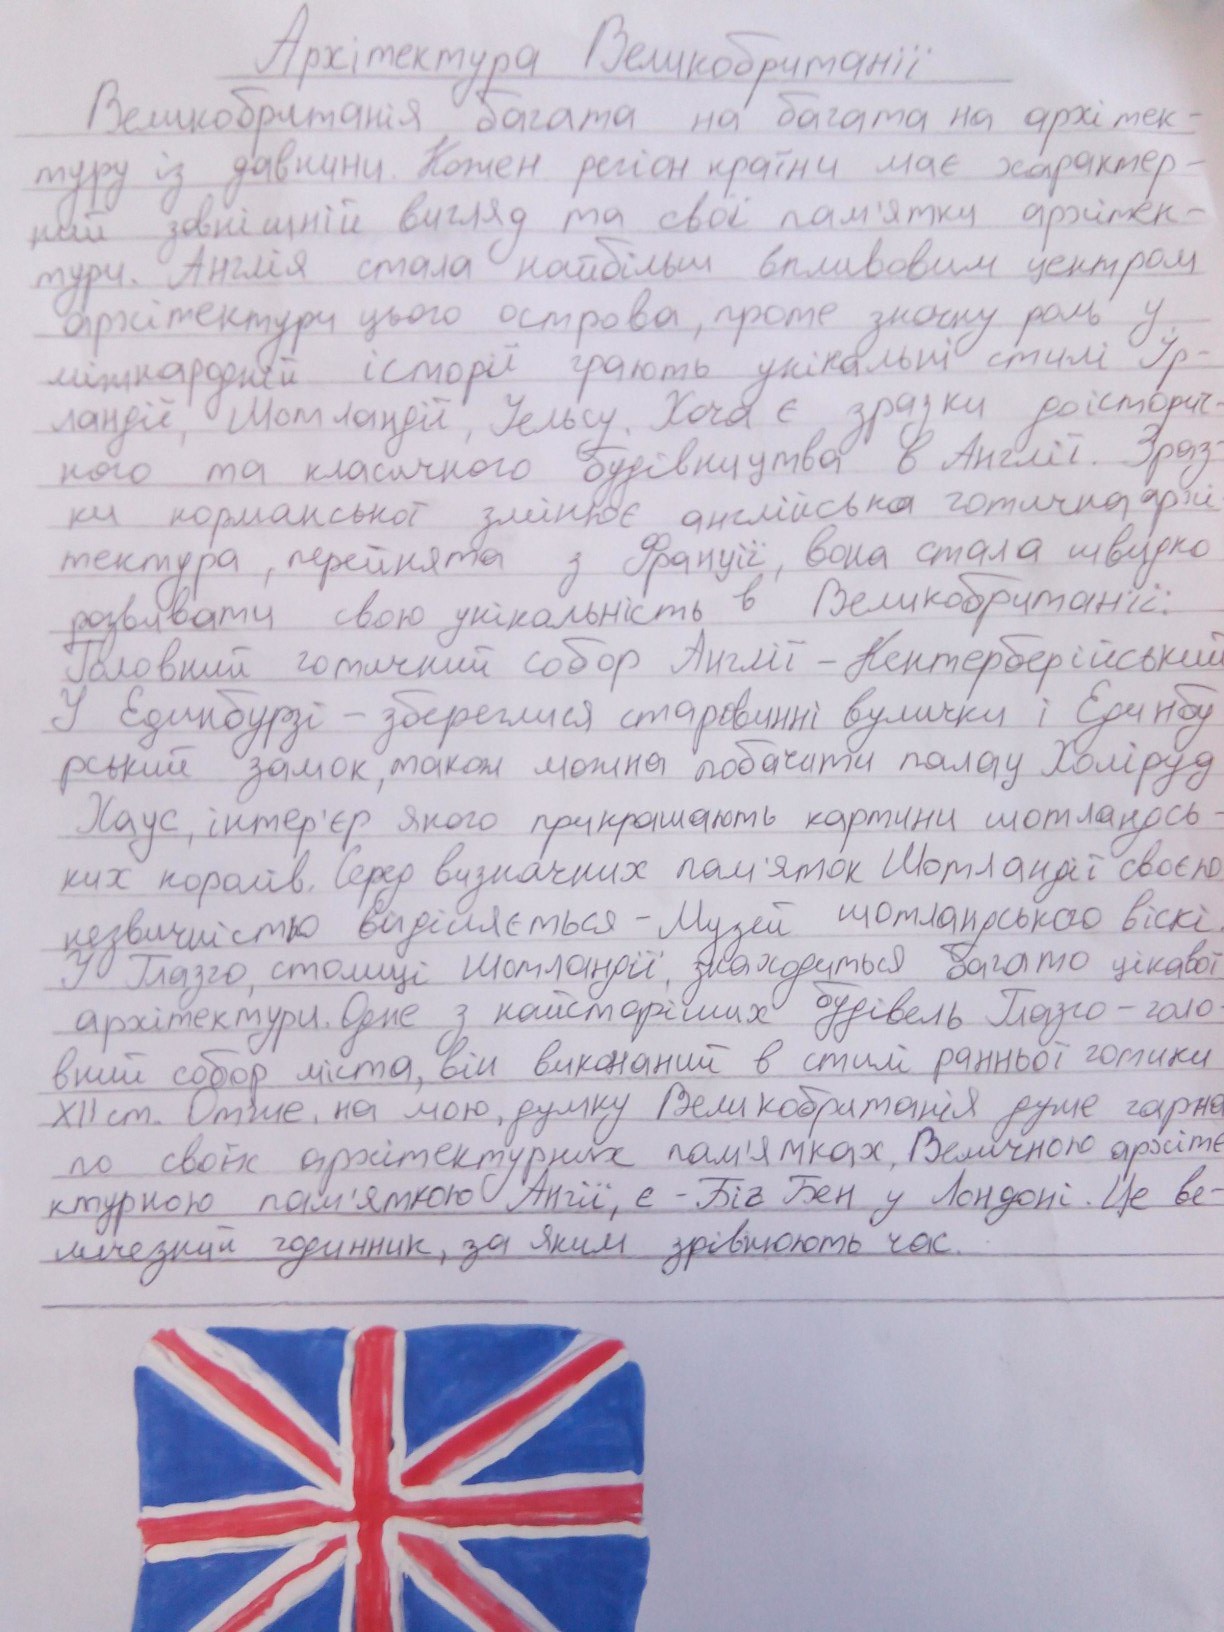 Архітектура Великобританії
Великобританія багата на багата на архітек-
туру із давнини. Кожен регіон країни має характер-
ний зовнішній вигляд та свої пам'ятки архітек-
тури. Англія стала найбільш впливовим центром
архітектури цього острова, проте значну роль у
міжнародній історії грають унікальні стилі Ір-
ландії, Шотландії, Уельсу. Хоча є зразки доісторич-
ного та класичного будівництва в Англії. Зраз-
ки норманської змінює англійська готична архі
тектура, перейнята з Франції, вона стала швидко
розвивати свою унікальність в Великобританії.
Головний готичний собор Англії - Кентерберійський
У Единбурзі - збереглися старовинні вулички і Единбу
рський замок, також можна побачити палац Холіруд
Хаус, інтер'єр якого прикрашають картини шотландсь-
ких королів. Серед визначних пам'яток Шотландії своєю
незвичністю виділяється - Музей шотландського віскі.
У Глазго, столиці Шотландії, знаходиться багато цікавої
архітектури. Одне з найстаріших будівель Глазго - голо-
вний собор міста, він виконаний в стилі ранньої готики
XII ст. Отже, на мою, думку Великобританія дуже гарна
по своїх архітектурних пам'ятках. Величною архіте
ктурною пам'яткою Ангії, є - Біг Бен у Лондоні. Це ве-
личезний годинник, за яким зрівнюють час.